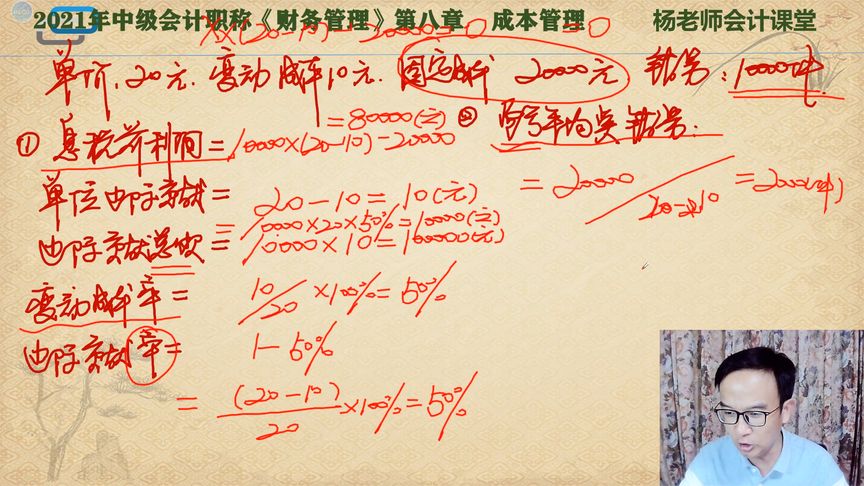 2021年中级会计职称《财务管理》第八章 成本管理 杨老师会计课堂
×(20-10)-20000=0 =0
单价:20元. 变动成本10元. 固定成本 20000元 销售:10000件
① 息税前利润=10000×(20-10)-20000
=80000(元)
② 盈亏平均点销售:
=20000/10=2000(件)
单位边际贡献= 20-10=10(元)
=10000×20×50%=100000(元)
边际贡献总额= 10000×10=100000(元)
变动成本率= 10/20×100%=50%
边际贡献率= 1-50%
=(20-10)/20×100%=50%